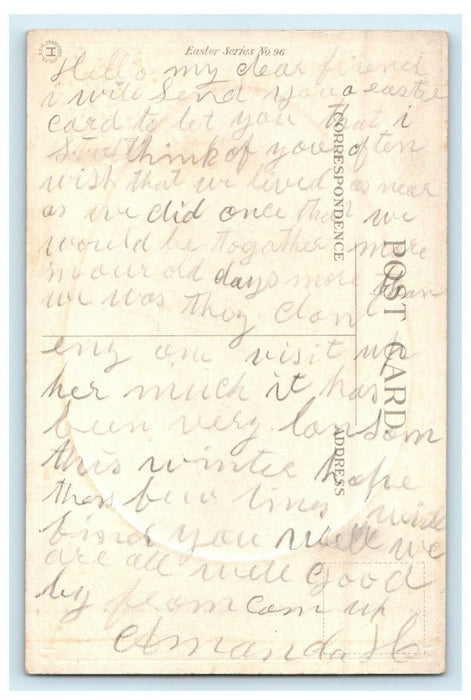 Easter Series No 96
Hello my dear friend
i will send you a easter
card to let you that i
Still think of you often
wish that we lived as near
as we did once that we
would be togather more
in our old days more than
we was they don
eny one visit up
her much it has
been very lonsom
this winter hope
thes few lines will
finer you well we
are all well good
by from com up
Amanda H
CORRESPONDENCE
POST CARD.
ADDRESS